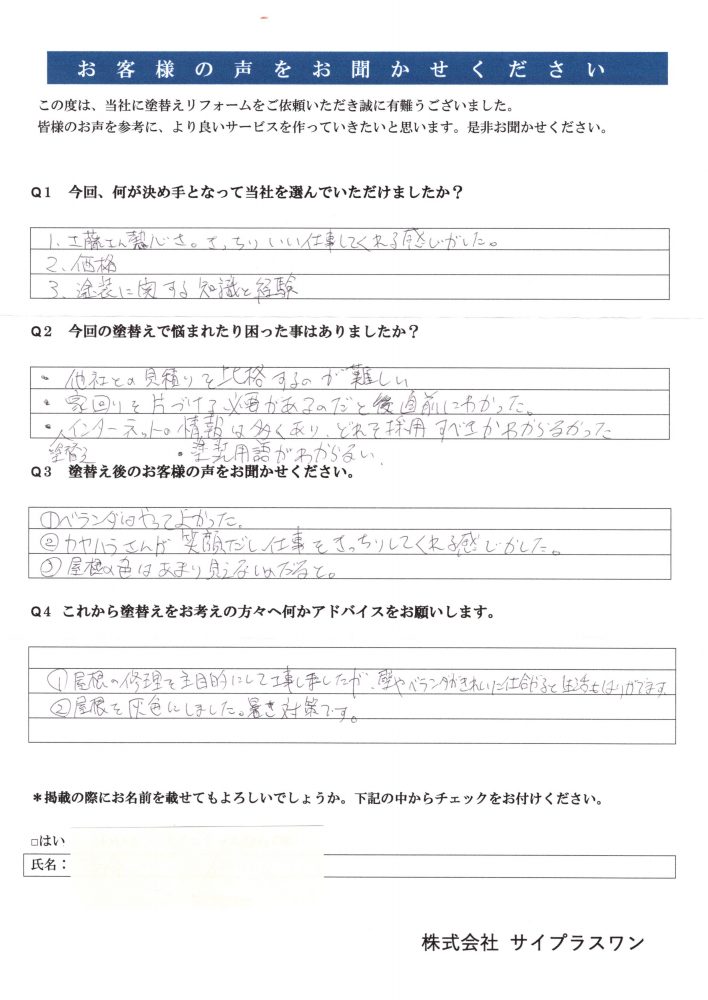 お客様の声をお聞かせください
この度は、当社に塗替えリフォームをご依頼いただき誠に有難うございました。
皆様のお声を参考に、より良いサービスを作っていきたいと思います。是非お聞かせください。
Q1 今回、何が決め手となって当社を選んでいただけましたか？
1、工藤さん熱心さ。きっちりいい仕事してくれる感じがした。
2、価格
3、塗装に関する知識と経験
Q2 今回の塗替えで悩まれたり困った事はありましたか？
・他社との見積りを比格するのが難しい
・家回りを片づける必要があるのだと後直前にわかった。
・インターネット。情報は多くあり、どれを採用すべきかわからなかった
塗替え ・塗装用語がわからない
Q3 塗替え後のお客様の声をお聞かせください。
①ベランダはやってよかった。
②カヤハラさんが笑顔だし仕事をきっちりしてくれる感じがした。
③屋根の色はあまり見えない
Q4 これから塗替えをお考えの方々へ何かアドバイスをお願いします。
①屋根の修理を主目的にして工事しましたが、壁やベランダがきれいに仕上がると生活もはりがでます
②屋根を灰色にしました。暑さ対策です。
＊掲載の際にお名前を載せてもよろしいでしょうか。下記の中からチェックをお付けください。
□はい
氏名：
株式会社 サイプラスワン